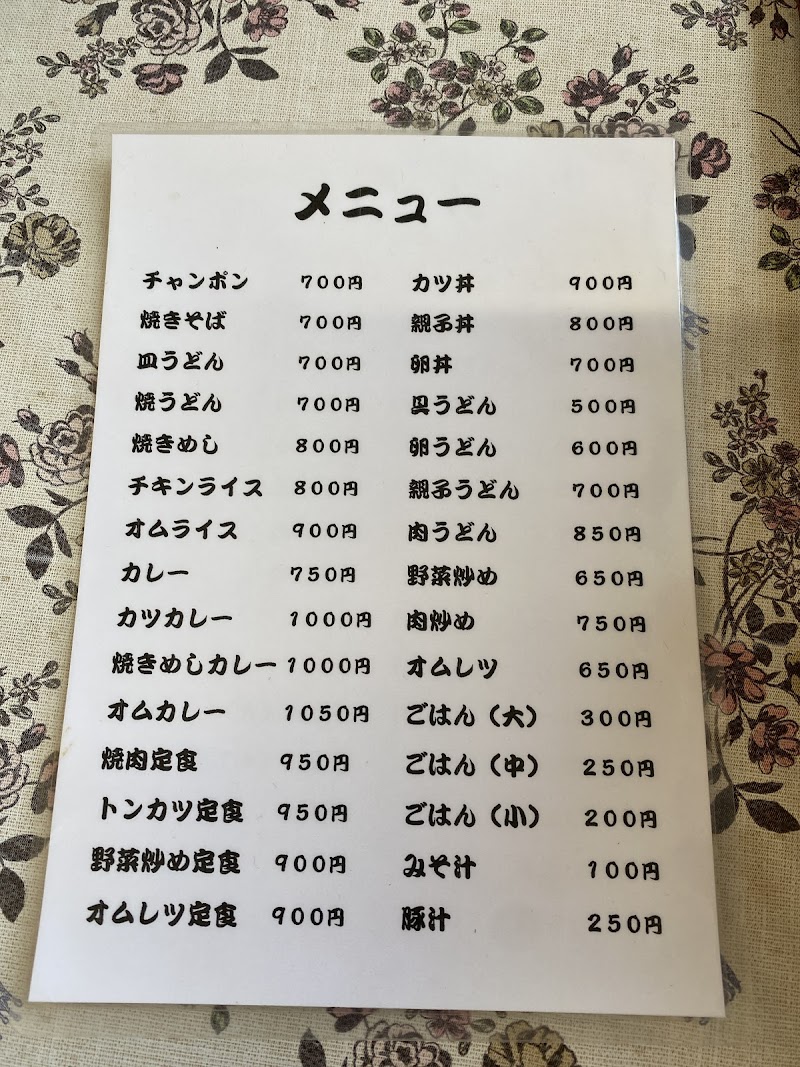 メニュー
チャンポン 700円
焼きそば 700円
皿うどん 700円
焼うどん 700円
焼きめし 800円
チキンライス 800円
オムライス 900円
カレー 750円
カツカレー 1000円
焼きめしカレー 1000円
オムカレー 1050円
焼肉定食 950円
トンカツ定食 950円
野菜炒め定食 900円
オムレツ定食 900円
カツ丼 900円
親子丼 800円
卵丼 700円
具うどん 500円
卵うどん 600円
親子うどん 700円
肉うどん 850円
野菜炒め 650円
肉炒め 750円
オムレツ 650円
ごはん（大） 300円
ごはん（中） 250円
ごはん（小） 200円
みそ汁 100円
豚汁 250円